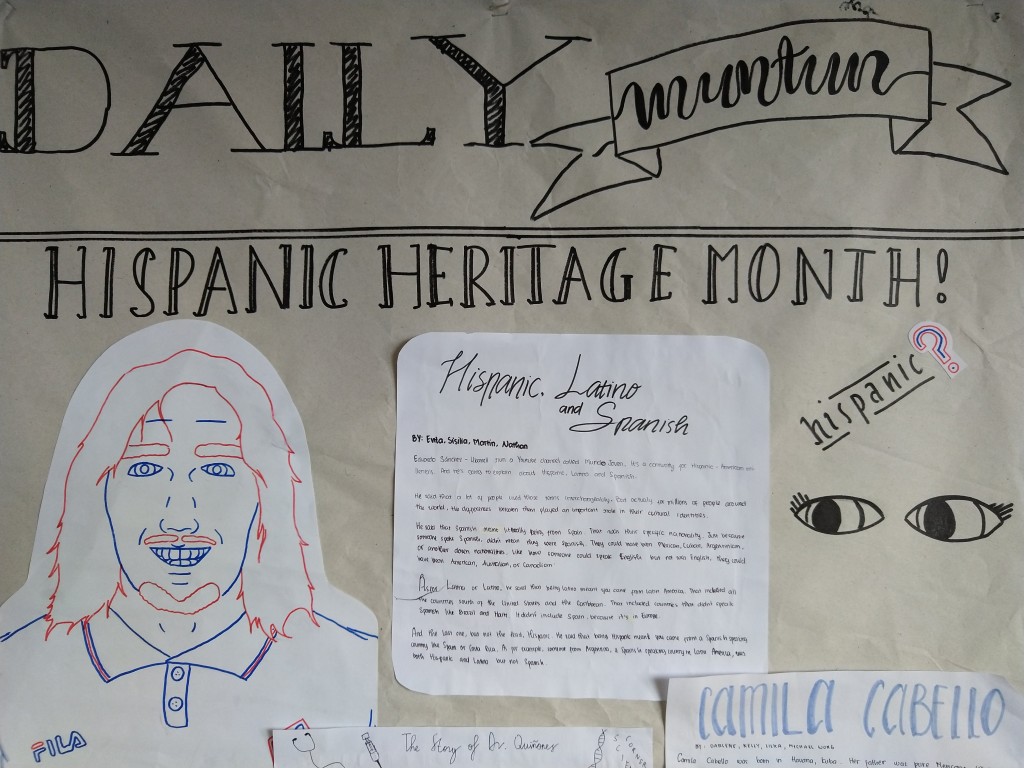 DAILY muntun
HISPANIC HERITAGE MONTH!
hispanic?
Hispanic, Latino
and Spanish
BY: Evita, Sisilia, Martin, Nathan
Eduardo Sánchez - Ubanell run a Youtube channel called Mundo Joven. It's a comunity for Hispanic - American
And he's going to explain about Hispanic, Latino and Spanish.
He said that a lot of people used those terms interchangeably. But actually for millions of people around
the world, the differences between them played an important role in their cultural identities.
He said that Spanish meant literally being from Spain. That was their specific nationality. Just because
someone spoke Spanish, didn't mean they were Spanish. They could have been Mexican, Cuban, Argentinian,
or another dozen nationalities. Like how someone could speak English but not be English. They could
have been American, Australian, or Canadian
Latino or Latina, he said that being latino meant you came from Latin America. That included all
the countries south of the United States and the Caribbean. That included countries that didn't speak
Spanish like Brazil and Haiti. It didn't include Spain, because it's in Europe.
And the last one, but not the least, Hispanic. He said that being Hispanic meant you came from a Spanish speaking
country like Spain or Costa Rica. As for example, someone from Argentina, a Spanish speaking country in Latin America, was
both Hispanic and Latino but not Spanish.
FILA
The Story of Dr. Quiñones
CAMILA CABELLO
BY: DARLENE, KELLY, LUNA, MICHAEL WONG
Camila Cabello was born in Havana, Cuba. Her father was pure Mexican